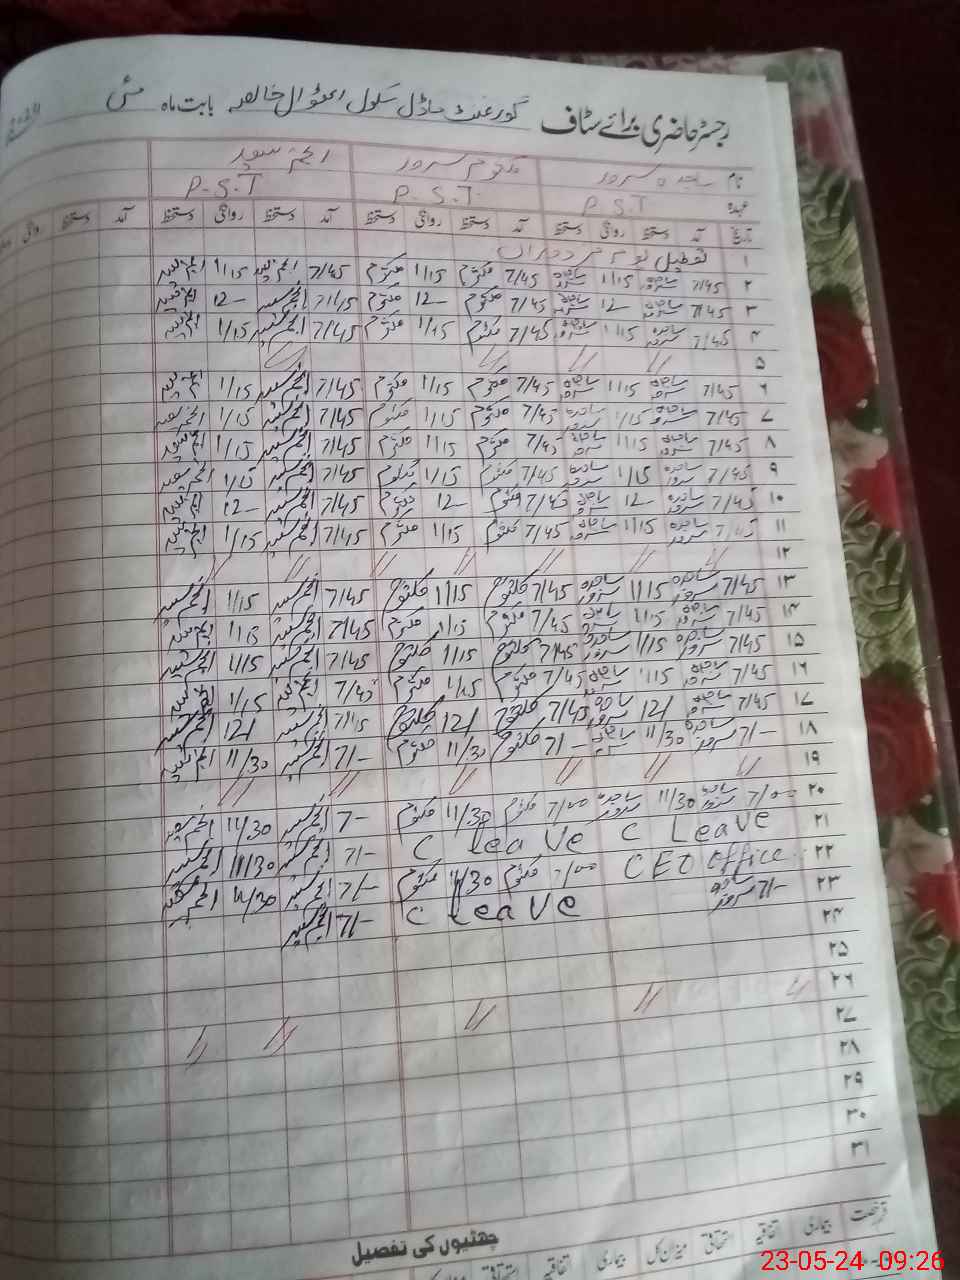 رجسٹر حاضری برائے سٹاف گورنمنٹ ماڈل سکول خالصہ بابت ماہ مئی
نام ساجدہ سرور کلثوم سرور انجم سعید
عہدہ P.S.T P.S.T P.S.T
تاریخ آمد دستخط روانگی دستخط آمد دستخط روانگی دستخط آمد دستخط روانگی دستخط آمد دستخط روانگی
۱ تعطیل یوم مزدوراں
۲ 7/45 ساجدہ سرور 1/15 ساجدہ سرور 7/45 کلثوم 1/15 کلثوم 7/45 انجم سعید 1/15 انجم سعید
۳ 7/45 ساجدہ سرور 12 ساجدہ سرور 7/45 کلثوم 12- کلثوم انجم سعید 12- انجم سعید
۴ 7/45 ساجدہ سرور 1/15 ساجدہ سرور 7/45 کلثوم 1/15 کلثوم 7/45 انجم سعید 1/15 انجم سعید
۵ // // //
۶ 7/45 ساجدہ سرور 1/15 ساجدہ سرور 7/45 کلثوم 1/15 کلثوم 7/45 انجم سعید 1/15 انجم سعید
۷ 7/45 ساجدہ سرور 1/15 ساجدہ سرور 7/45 کلثوم 1/15 کلثوم 7/45 انجم سعید 1/15 انجم سعید
۸ 7/45 ساجدہ سرور 1/15 ساجدہ سرور 7/45 کلثوم 1/15 کلثوم 7/45 انجم سعید 1/15 انجم سعید
۹ 7/45 ساجدہ سرور 1/15 ساجدہ سرور 7/45 کلثوم 1/15 کلثوم 7/45 انجم سعید 1/15 انجم سعید
۱۰ 7/45 ساجدہ سرور 12- ساجدہ سرور 7/45 کلثوم 12- کلثوم 7/45 انجم سعید 12- انجم سعید
۱۱ 7/45 ساجدہ سرور 1/15 ساجدہ سرور 7/45 کلثوم 1/15 کلثوم 7/45 انجم سعید 1/15 انجم سعید
۱۲ // // // // // //
۱۳ 7/45 ساجدہ سرور 1/15 ساجدہ سرور 7/45 کلثوم 1/15 کلثوم 7/45 انجم سعید 1/15 انجم سعید
۱۴ 7/45 ساجدہ سرور 1/15 ساجدہ سرور 7/45 کلثوم 1/15 کلثوم 7/45 انجم سعید 1/15 انجم سعید
۱۵ 7/45 ساجدہ سرور 1/15 ساجدہ سرور 7/45 کلثوم 1/15 کلثوم 7/45 انجم سعید 1/15 انجم سعید
۱۶ 7/45 ساجدہ سرور 1/15 ساجدہ سرور 7/45 کلثوم 1/15 کلثوم 7/45 انجم سعید 1/15 انجم سعید
۱۷ 7/45 ساجدہ سرور 12/ ساجدہ سرور 7/45 کلثوم 12/ کلثوم 7/15 انجم سعید 12/ انجم سعید
۱۸ 7/- ساجدہ سرور 11/30 ساجدہ سرور 7/- کلثوم 11/30 کلثوم 7/- انجم سعید 11/30 انجم سعید
۱۹ // // // // // //
۲۰ 7/00 ساجدہ سرور 11/30 ساجدہ سرور 7/00 کلثوم 11/30 کلثوم 7- انجم سعید 11/30 انجم سعید
۲۱ C Leave C leave 7/- انجم سعید 11/30 انجم سعید
۲۲ CEO office 7/00 کلثوم 11/30 کلثوم 7/- انجم سعید 11/30 انجم سعید
۲۳ 7/- ساجدہ سرور C leave 7/- انجم سعید
۲۴
۲۵
۲۶ // // // // //
۲۷
۲۸
۲۹
۳۰
۳۱
چھٹیوں کی تفصیل
قسم رخصت بیماری اتفاقیہ استحقاقی میزان کل بیماری اتفاقیہ استحقاقی
23-05-24 09:26